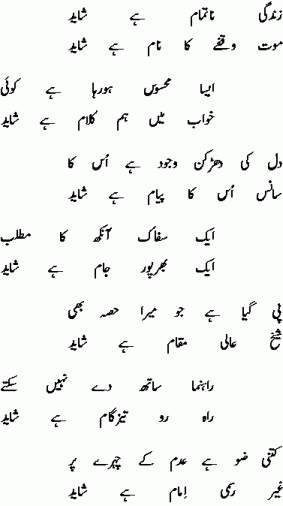 زندگی ناتمام ہے شاید
موت وقفے کا نام ہے شاید
ایسا محسوس ہورہا ہے کوئی
خواب میں ہم کلام ہے شاید
دل کی دھڑکن وجود ہے اُس کا
سانس اُس کا پیام ہے شاید
ایک سفاک آنکھ کا مطلب
ایک بھرپور جام ہے شاید
پی گیا ہے جو میرا حصہ بھی
شیخ عالی مقام ہے شاید
راہنما ساتھ دے نہیں سکتے
راہ رو تیزگام ہے شاید
کتنی ضو ہے عدم کے چہرے پر
غیر رسمی اِمام ہے شاید